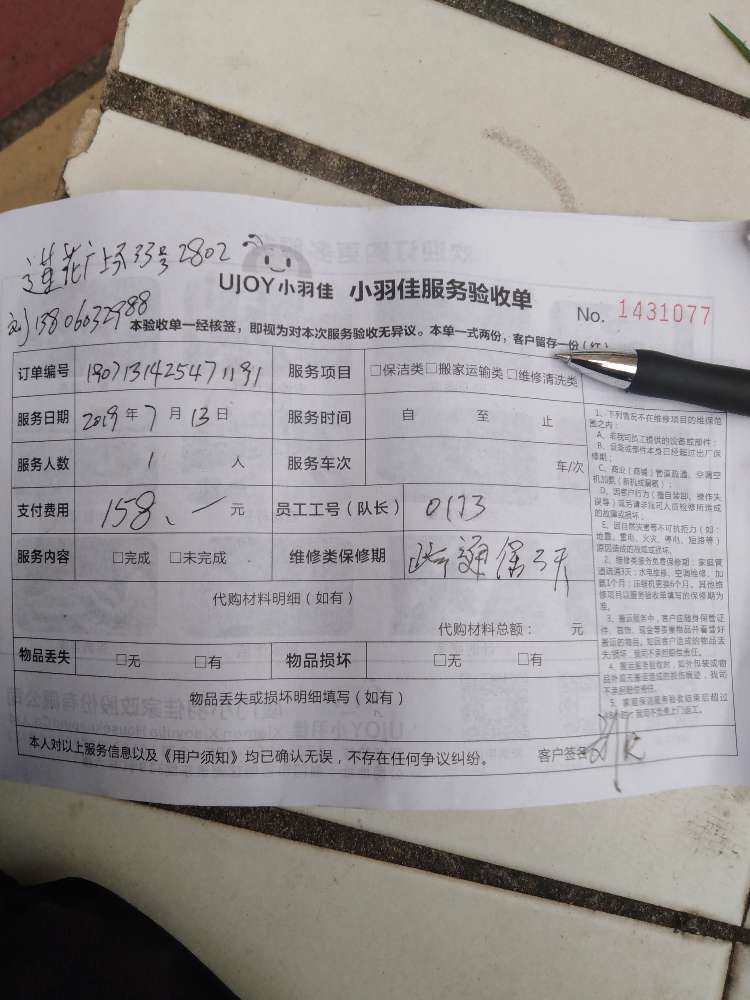 莲花广场33号2802
UJOY小羽佳 小羽佳服务验收单
No. 1431077
13806032988
本验收单一经核签，即视为对本次服务验收无异议。本单一式两份，客户留存一份（红）
订单编号 1907131425471191 服务项目 □保洁类□搬家运输类□维修清洗类
服务日期 2019年7月13日 服务时间 自 至 止
服务人数 1 人 服务车次 车/次
支付费用 158、一元 员工工号（队长） 0173
服务内容 □完成 □未完成 维修类保修期 通保3天
代购材料明细（如有）
代购材料总额： 元
物品丢失 □无 □有 物品损坏 □无 □有
物品丢失或损坏明细填写（如有）
本人对以上服务信息以及《用户须知》均已确认无误，不存在任何争议纠纷。 客户签名
1、下列情况不在维修项目的维保范
围之内：
A、非我司员工提供的设备或部件；
B、设备或部件本身已经超过出厂保
修期；
C、商业（商铺）管道疏通、空调空
机加氨（新机或漏氨）；
D、因客户行为（擅自装卸、操作失
误等）或若请非我司人员检修所造成
的故障或损坏；
E、因自然灾害等不可抗力（如：
地震、雷电、火灾、停电、短路等）
原因造成的故障或损坏。
2、维修类服务免费保修期：家庭管
道疏通3天；水电维修、空调检修、加
氨1个月；压缩机更换6个月。其他维
修项目以服务验收单填写的保修期为
准。
3、搬运服务中，客户应随身保管证
件、首饰、现金等贵重物品并看管好
搬运的物品，如因客户造成的物品丢
失/损坏，我司不承担赔偿责任。
4、搬运服务验收时，如外包装或物
品外观无搬运造成的损伤痕迹，我司
不承担赔偿责任。
5、家庭保洁服务验收结束后超过